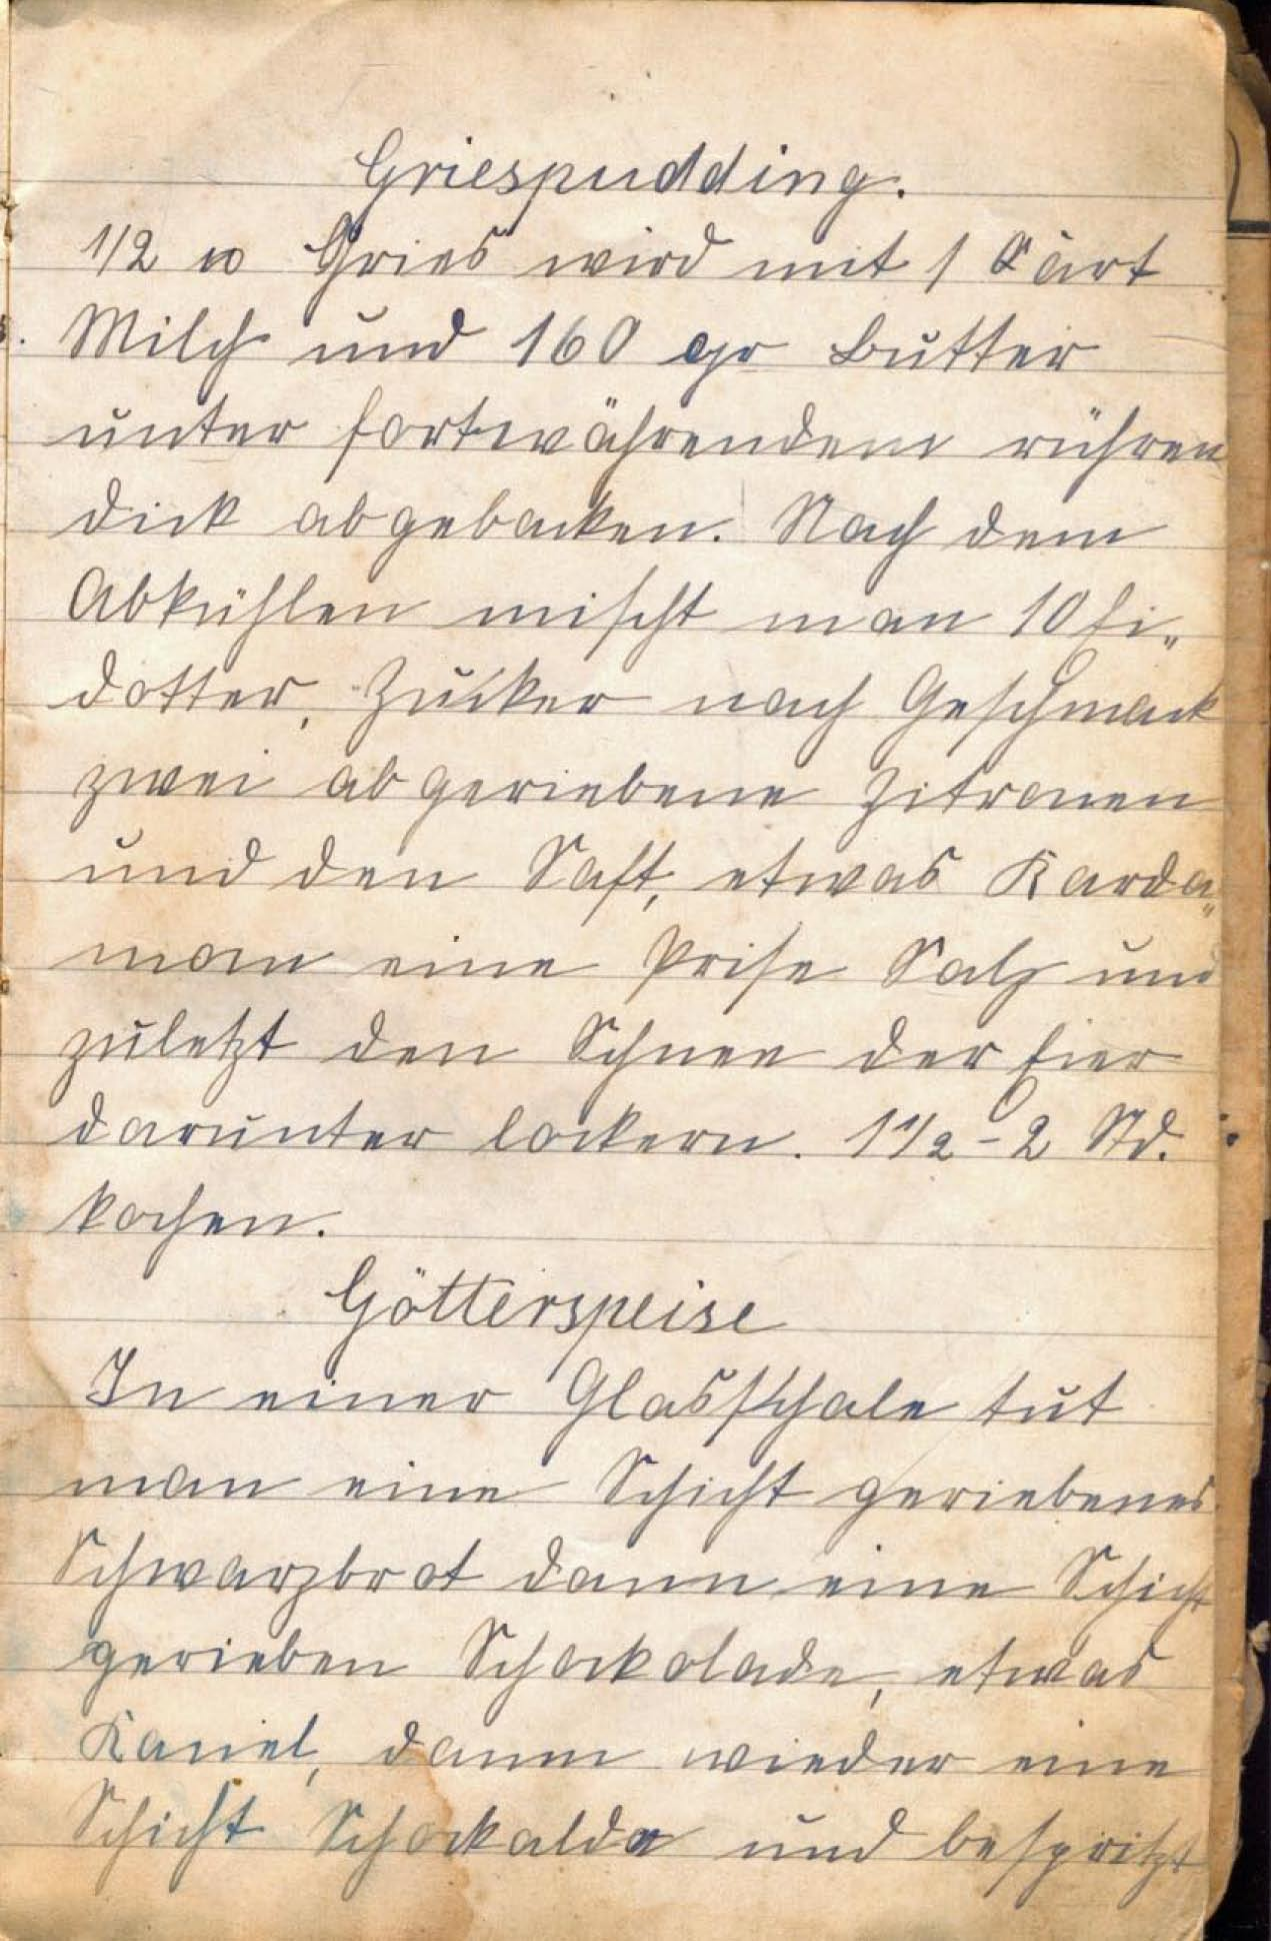 Griespudding.
1/2 ℔ Gries wird mit 1 Kart
Milch und 160 gr Butter
unter fortwährendem rühren
dick abgebacken. Nach dem
Abkühlen mischt man 10 Ei„
dotter, Zucker nach Geschmack
zwei abgeriebene Zitronen
und den Saft, etwas Karda„
mom eine Prise Salz und
zuletzt den Schnee der Eier
darunter lockern. 1 1/2 - 2 Std.
kochen.
Götterspeise
In einer Glasschale tut
man eine Schicht geriebenes
Schwarzbrot dann eine Schicht
gerieben Schockolade, etwas
Kaniel, dann wieder eine
Schicht Schockalde und bespritzt